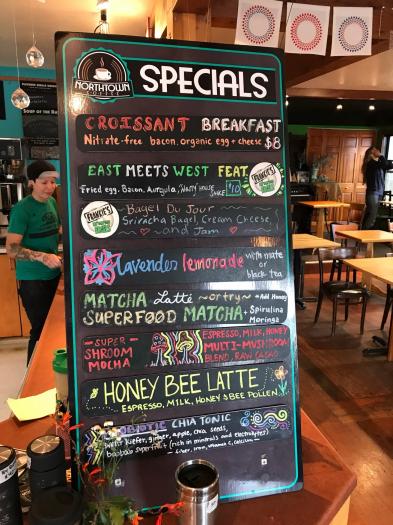 NORTHTOWN
COFFEE
SPECIALS
CROISSANT BREAKFAST
Nitrate-free bacon, organic egg + cheese $8
EAST MEETS WEST FEAT.
Fried egg, Bacon, Aurgula, "NASTY HOUSE SAUCE" $10
Bagel Du Jour
Sriracha Bagel, Cream Cheese
and Jam
lavender lemonade with mate or black tea
MATCHA Latte ~or try~ + Add Honey
SUPERFOOD MATCHA + Spirulina Moringa
- SUPER - SHROOM MOCHA
ESPRESSO, MILK, HONEY
MULTI-MUSHROOM
BLEND, RAW CACAO
HONEY BEE LATTE
ESPRESSO, MILK, HONEY & BEE POLLEN
PROBIOTIC CHIA TONIC
water kiefer, ginger, apple, chia seeds,
baobab superfruit (rich in minerals and electrolytes)
fiber, iron, vitamin C, calcium